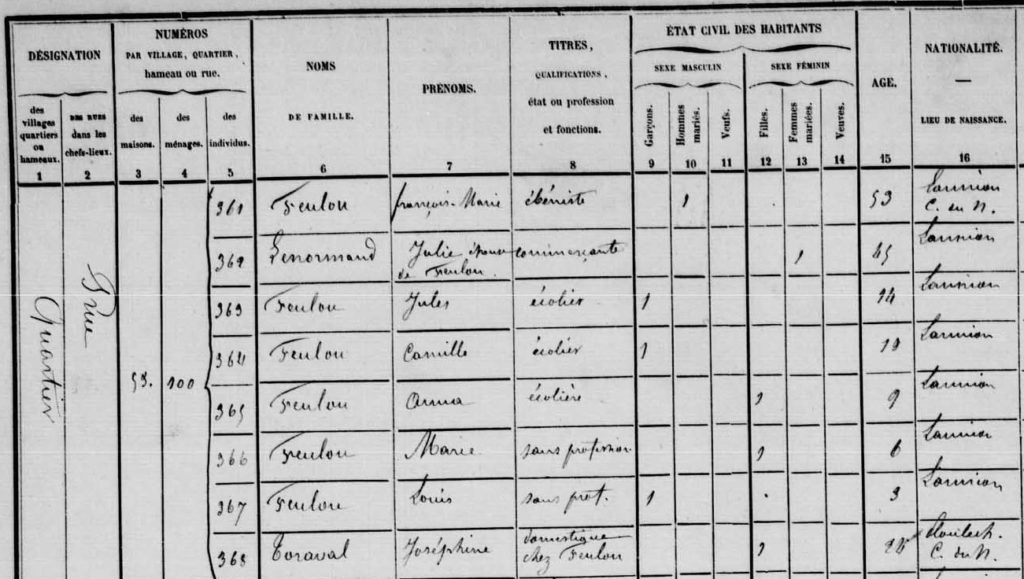 DÉSIGNATION
NUMÉROS
PAR VILLAGE, QUARTIER,
hameau ou rue.
NOMS
DE FAMILLE.
PRÉNOMS.
TITRES,
QUALIFICATIONS,
état ou profession
et fonctions.
ÉTAT CIVIL DES HABITANTS
SEXE MASCULIN
SEXE FÉMININ
AGE.
NATIONALITÉ.
LIEU DE NAISSANCE.
des villages quartiers ou hameaux.
DES RUES dans les chefs-lieux.
des maisons.
des ménages.
des individus.
Garçons.
Hommes mariés.
Veufs.
Filles.
Femmes mariées.
Veuves.
1 2 3 4 5 6 7 8 9 10 11 12 13 14 15 16
Quartier
Rue
53. 100
361 Feulou François-Marie ébéniste 1 53 Lannion C. du N.
362 Lenormand Julie épouse de Feulou commerçante 1 45 Lannion
363 Feulou Jules écolier 1 14 Lannion
364 Feulou Camille écolier 1 Lannion
365 Feulou Anna écolière 1 9 Lannion
366 Feulou Marie sans profession 1 6 Lannion
367 Feulou Louis sans prof. 1 3 Lannion
368 Toraval Joséphine domestique chez Feulou 1 C. du N.